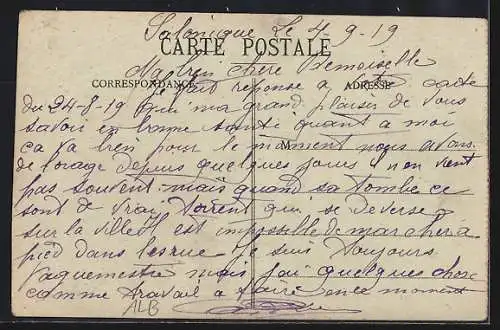 Salonique Le 4-9-19
CARTE POSTALE
chère Demoiselle
CORRESPONDANCE ADRESSE
Je fait reponse a Votre carte
du 24-8-19 qui ma grand plaisir de vous
savoir en bonne santé quant a moi
M
ça va bien pour le moment nous avons
de lorage depuis quelques jours il non vient
pas souvent mais quand sa tombe ce
sont de vrai torrent qui se deverse
sur la ville il est impossible de marcher a
pied dans les rue Je suis Toujours
Vaguemestre mais jai quelques chose
comme travail a faire en ce moment
ALB